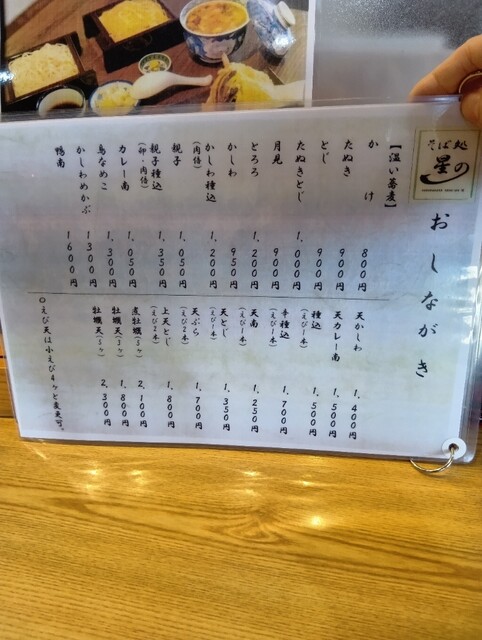 そば処
星の
おしながき
【温い蕎麦】
かけ 800円
たぬき 900円
とじ 900円
たぬきとじ 1,000円
月見 900円
とろろ 1,200円
かしわ 950円
かしわ種込 1,200円
(肉倍)
親子 1,050円
親子種込 1,350円
(卵・肉倍)
カレー南 1,050円
鳥なめこ 1,300円
かしわめかぶ 1300円
鴨南 1600円
天かしわ 1,400円
天カレー南 1,500円
種込 1,500円
(えび1本)
辛種込 1,700円
(えび1本)
天南 1,250円
(えび1本)
天とじ 1,350円
(えび1本)
天ぷら 1,700円
(えび2本)
上天とじ 1,800円
(えび2本)
煮牡蠣(5ヶ) 2,100円
牡蠣天(3ヶ) 1,800円
牡蠣天(5ヶ) 2,300円
○えび天は小えび4ヶと変更可。